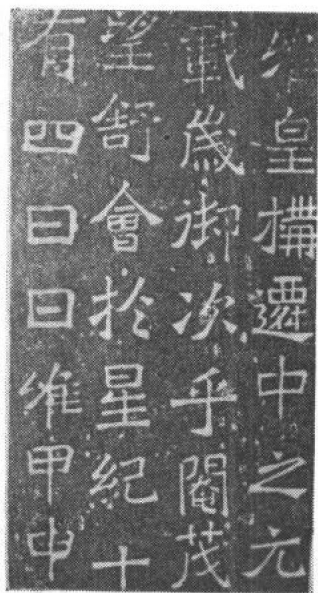 維皇搆遷中之元
載歲御次乎閹茂
望舒會於星紀十
有四日日維甲申